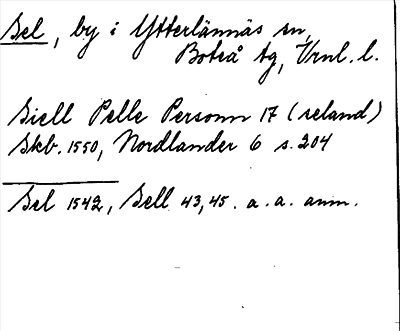 Sel, by i Ytterlännäs sn,
Boteå tg, Vrnl. l.
Siell Pelle Personn 17 (seland)
Skb. 1550, Nordlander 6 s. 204
Sel 1542, Sell 43, 45. a. a. anm.